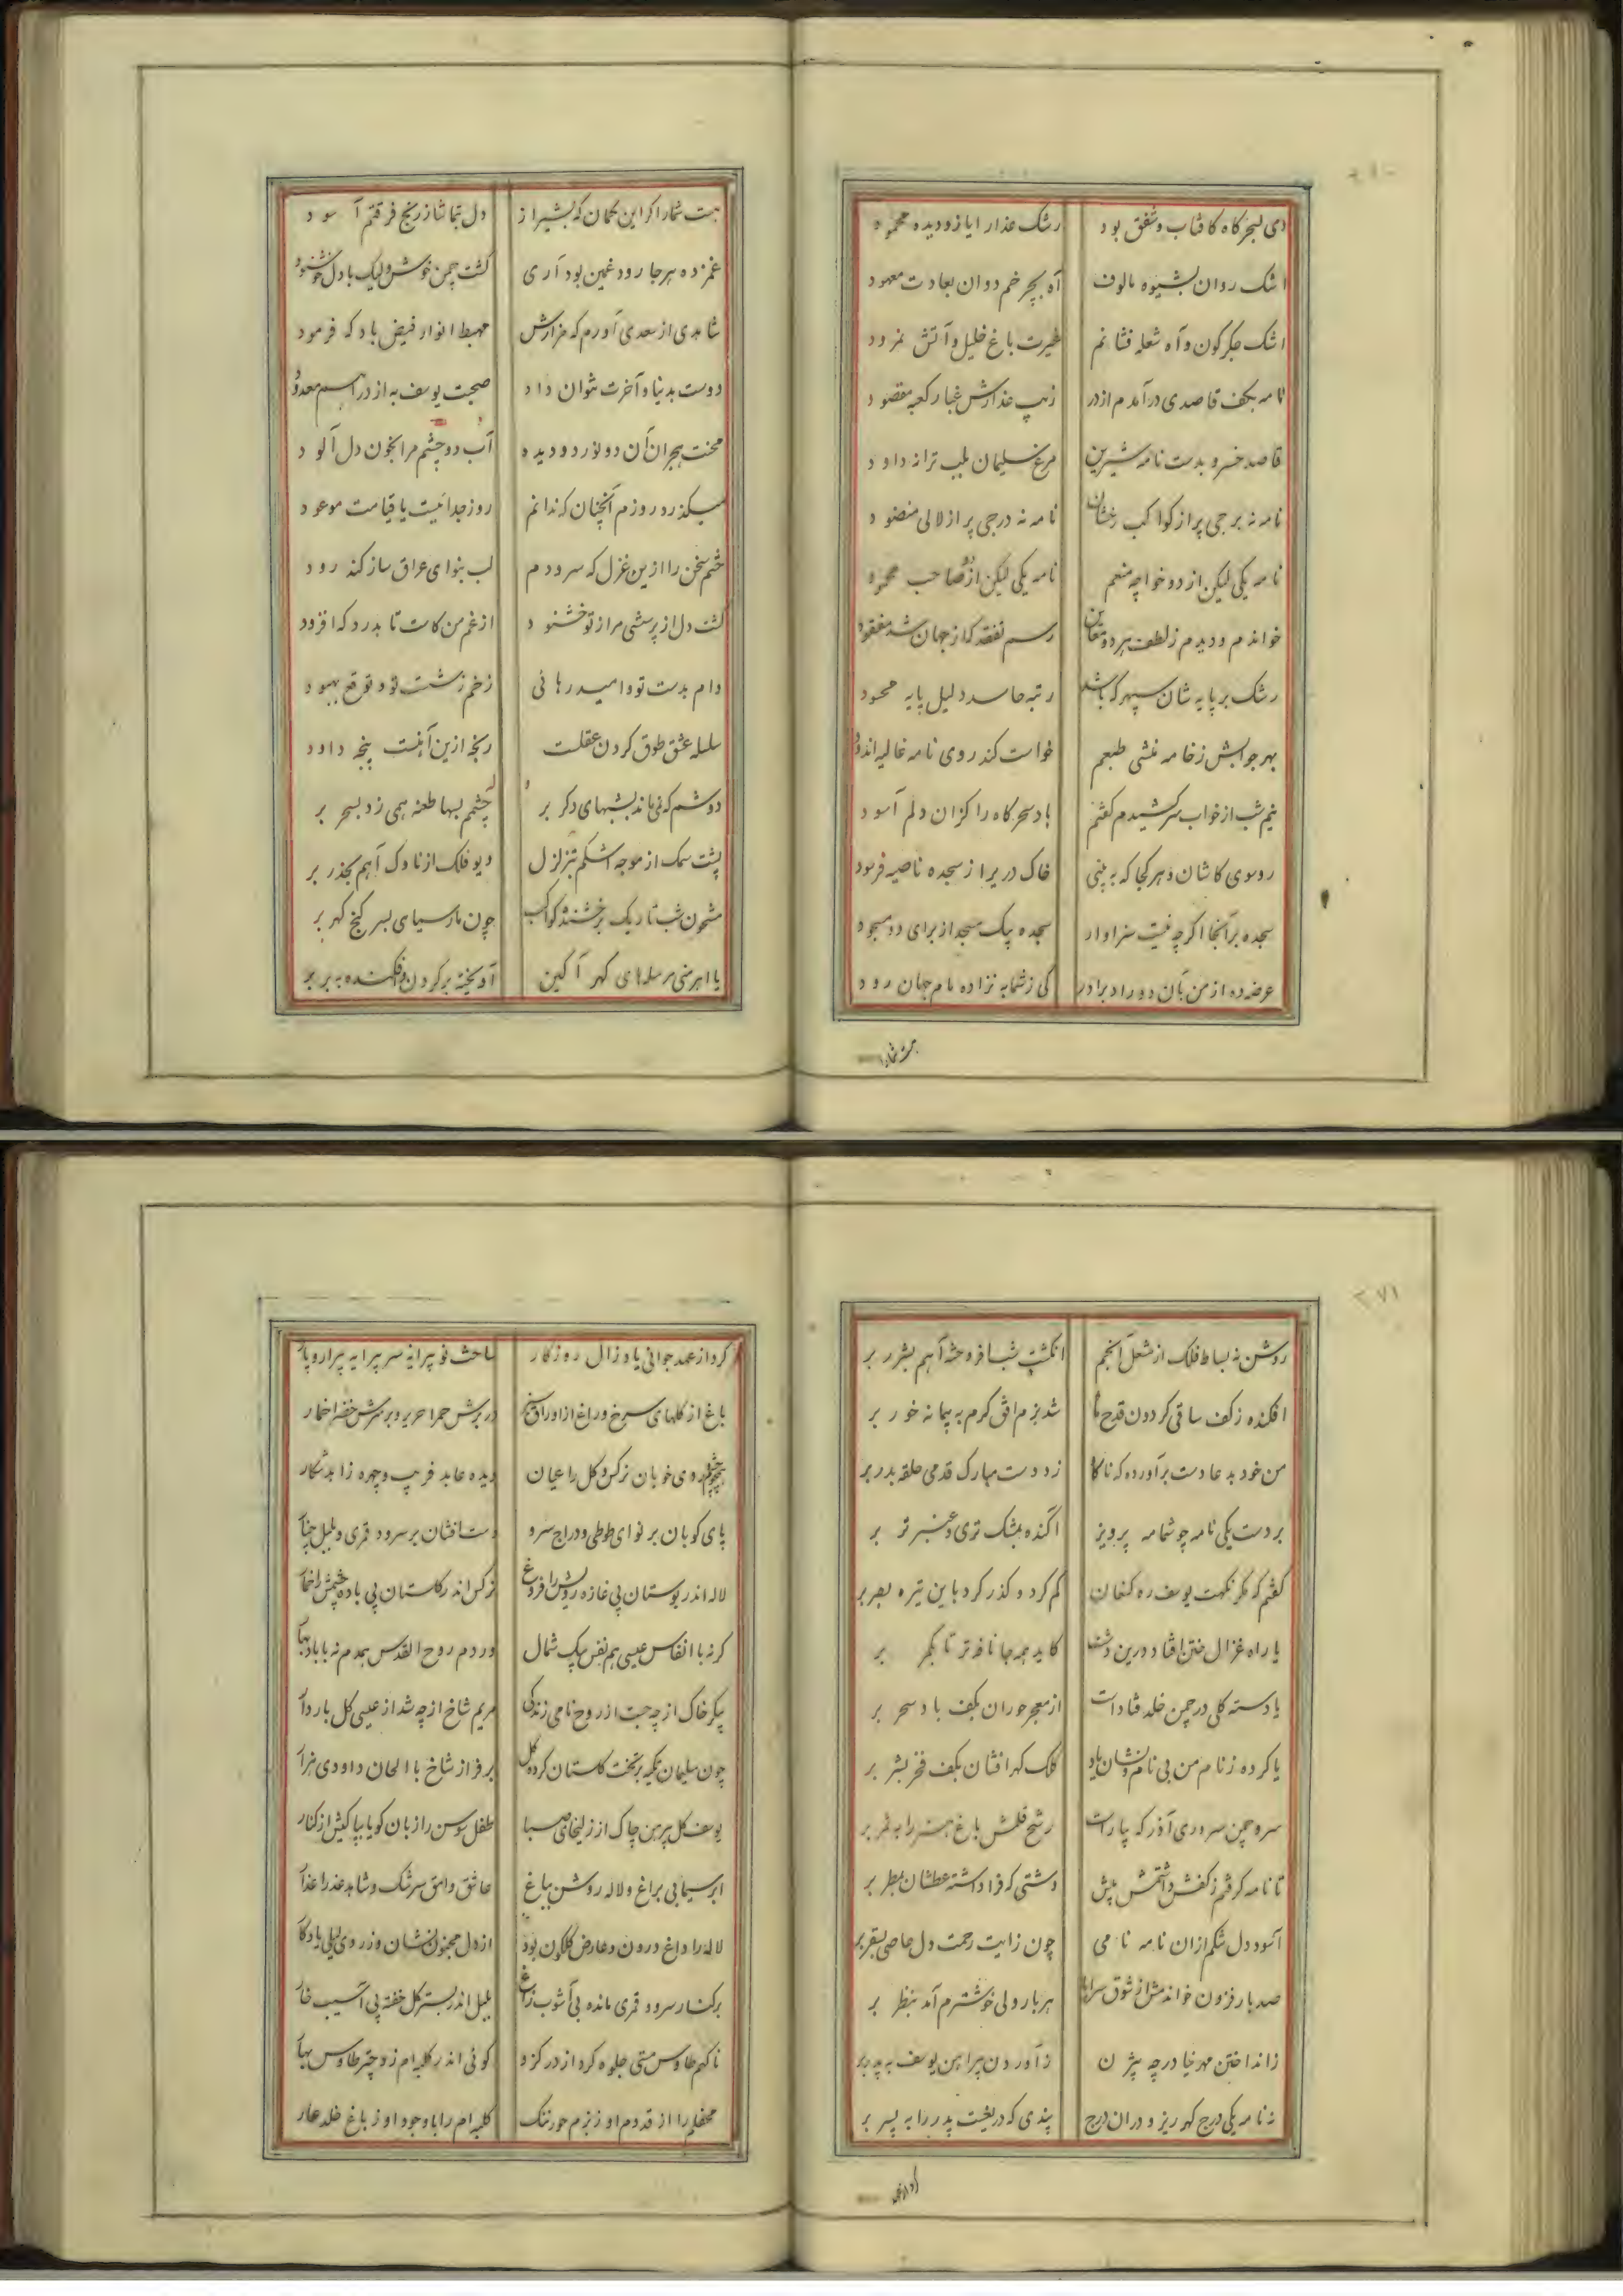 دمی بسحرگاه کافتاب و شفق بود رشک عذار ایاز و دیده محمود
اشک روان بشیوه مالوف آه بچرخم دوان بعادت معهود
اشک جگرگون و آه شعله فشانم غیرت باغ خلیل و آتش نمرود
نامه بکف قاصدی درآمدم از در زیب عذارش غبار کعبه مقصود
قاصد خسرو بدست نامه شیرین مرغ سلیمان بلب ترانه داود
نامه نه برجی پر از کواکب رخشان نامه نه درجی پر از لالی منضود
نامه یکی لیکن از دو خواجه منعم نامه یکی لیکن از دو صاحب محمود
خواندم و دیدم ز لطف هر دو معاین رسم تفقد که از جهان شد مفقود
رشک بر پایه شان سپهر که باشد رتبه حاسد دلیل پایه محسود
بهر جوابش ز خامه منشی طبعم خواست کند روی نامه غالیه اندود
نیم شب از خواب سر کشیدم گفتم باد سحرگاه را کزان دلم آسود
رو سوی کاشان و هر کجا که به بینی خاک دریرا ز سجده ناصیه فرسود
سجده بر آنجا اگرچه نیست سزاوار سجده یک مسجد از برای دو مسجود
عرضه ده از من بآن دو راد برادر کی ز شما به نزاده مام جهان رود
هست شما را
هست شما را گر این گمان که بشیراز دل بتماشا ز رنج فرقتم آسود
غمزده هر جا رود غمین بود آری گشت چمن خوش ولیک با دل خوشنود
شاهدی از سعدی آورم که مزارش مهبط انوار فیض باد که فرمود
دوست بدنیا و آخرت نتوان داد صحبت یوسف به از دراهم معدود
محنت هجران آن دو نور دو دیده آب دو چشم مرا بخون دل آلود
میگذرد روزم آنچنان که ندانم روز جدائیست یا قیامت موعود
ختم سخن را ازین غزل که سرودم لب بنوای عراق ساز کند رود
گشت دل از پرسشی مرا ز تو خشنود از غم من کاست تا بدرد که افزود
دام بدست تو و امید رهائی زخم ز شست تو و توقع بهبود
سلسله عشق طوق گردن عقلست رنجه ازین آهنست پنجه داود
دوشم که نماند بشبهای دگر بر چشمم بسها طعنه همی زد بسحر بر
پشت سمک از موجه اشکم بتزلزل دیو فلک از ناوک آهم بحذر بر
مشحون شب تاریک برخشنده کواکب چون مار سیاهی بسر گنج گهر بر
یا اهرمنی مرسلهای گهر آگین آویخته بر گردن و افکنده به بر بر
۲۷۱
روشن نه بساط فلک از مشعل انجم انگشت شبا فروخته آهم بشرر بر
افکنده ز کف ساقی گردون قدح ماه شد بزم افق گرم به پیمانه خور بر
من خود بد عادت برآورده که ناگاه زد دست مبارک قدمی حلقه بدر بر
بر دست یکی نامه چو شمامه پرویز آکنده بمشک تری و عنبر تر بر
گفتم که مگر نکهت یوسف ره کنعان گم کرد و گذر کرد باین تیره بصر بر
یا راه غزال ختن افتاد درین دشت کاید همه جا نافه تر تا بکمر بر
یا دسته گلی در چمن خلد فتادست از معجر حوران بکف باد سحر بر
یا کرده ز نام من بی نام و نشان یاد کلک گهرافشان بکف فخر بشر بر
سرو چمن سروری آذر که بیاراست رشح قلمش باغ هنر را به ثمر بر
تا نامه گرفتم ز کفش داشتمش پیش دستی که فرا داشته عطشان بمطر بر
آسود دل تنگم ازان نامه نامی چون ز آیت رحمت دل عاصی بسقر بر
صد بار فزون خواندمش از شوق سراپا هر بار ولی خوشترم آمد بنظر بر
ز انداختن مهر خیا در چه بیژن ز آوردن پیراهن یوسف به پدر بر
نه نامه یکی درج گهر ریز و دران درج پندی که دریغست پدر را به پسر بر
کرد از عهد
کرد از عهد جوانی یاد زال روزگار ساخت نو پیرانه سر پیرایه پیرار و پار
باغ از گلهای سرخ و راغ از اوراق سبز در برش حمرا حریر و بر سرش خضرا خمار
همچو چشم و روی خوبان نرگس و گل را عیان دیده عابد فریب و چهره زاهد شکار
پای کوبان بر نوای طوطی و دراج سرو دست افشان بر سرود قمری و بلبل چنار
لاله اندر بوستان بی غازه رویش را فروغ نرگس اندر گلستان بی باده چشمش را خمار
گر نه با انفاس عیسی هم نفس پیک شمال ور دم روح القدس همدم نه با باد بهار
پیکر خاک از چه جست از روح نامی زندگی مریم شاخ از چه شد از عیسی گل باردار
چون سلیمان تکیه بر تخت گلستان کرده گل بر فراز شاخ با الحان داودی هزار
یوسف گل پیرهن چاک از زلیخای صبا طفل سوسن را زبان گویا بپاکیش از کنار
ابر سیمابی براغ و لاله روشن بباغ عاشق وامق سرشک و شاهد عذرا عذار
لاله را داغ درون و عارض گلگون بود از دل مجنون نشان و ز روی لیلی یادگار
بر کنار سرو قمری مانده بی آشوب زاغ بلبل اندر بستر گل خفته بی آسیب خار
ناگهم طاوس مستی جلوه کرد از در کزو گوئی اندر کلبه ام زد چتر طاوس بهار
محفلم را از قدوم او ز بزم حور ننگ کلبه ام را با وجود او ز باغ خلد عار